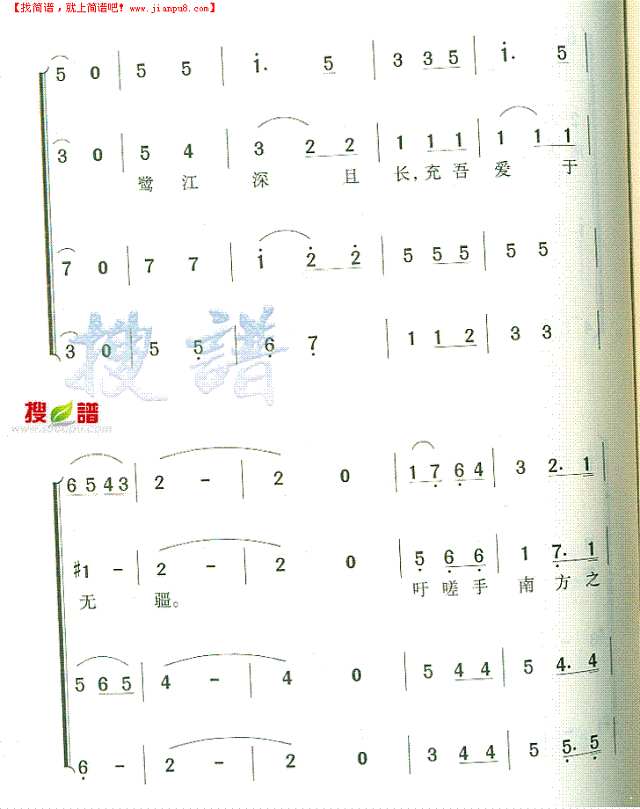 【找简谱，就上简谱吧！www.jianpu8.com】
5 0 | 5 5 | i. 5 | 3 3 5 | i. 5 |
3 0 | 5 4 | 3 2 2 | 1 1 1 | 1 1 1 |
鹭 江 深 且 长，充 吾 爱 于
7 0 | 7 7 | i 2 2 | 5 5 5 | 5 5 |
3 0 | 5 5 | 6 7 | 1 1 2 | 3 3 |
搜 谱
搜 谱
6 5 4 3 | 2 - | 2 0 | 1 7 6 4 | 3 2. 1 |
#1 - | 2 - | 2 0 | 5 6 6 | 1 7. 1 |
无 疆。 吁 嗟 手 南 方 之
5 6 5 | 4 - | 4 0 | 5 4 4 | 5 4. 4 |
6 - | 2 - | 2 0 | 3 4 4 | 5 5. 5 |